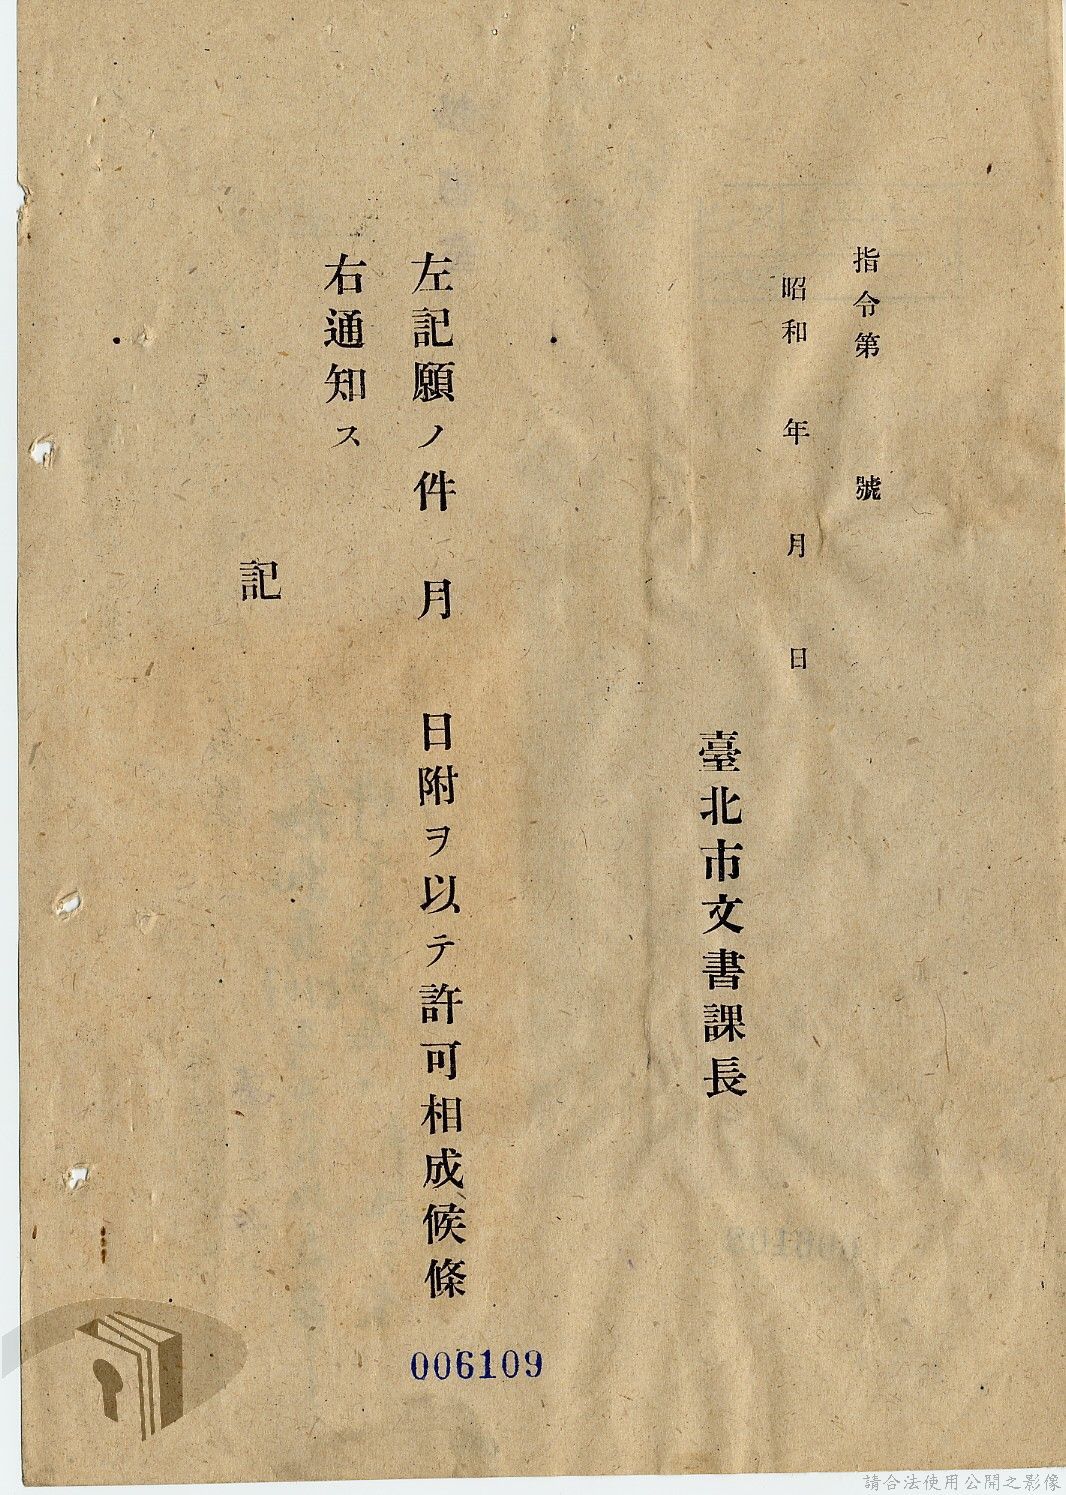 指令第　　　號
昭和　　年　　月　　日
臺北市文書課長
左記願ノ件　月　　日附ヲ以テ許可相成候條
右通知ス
記
006109
請合法使用公開之影像